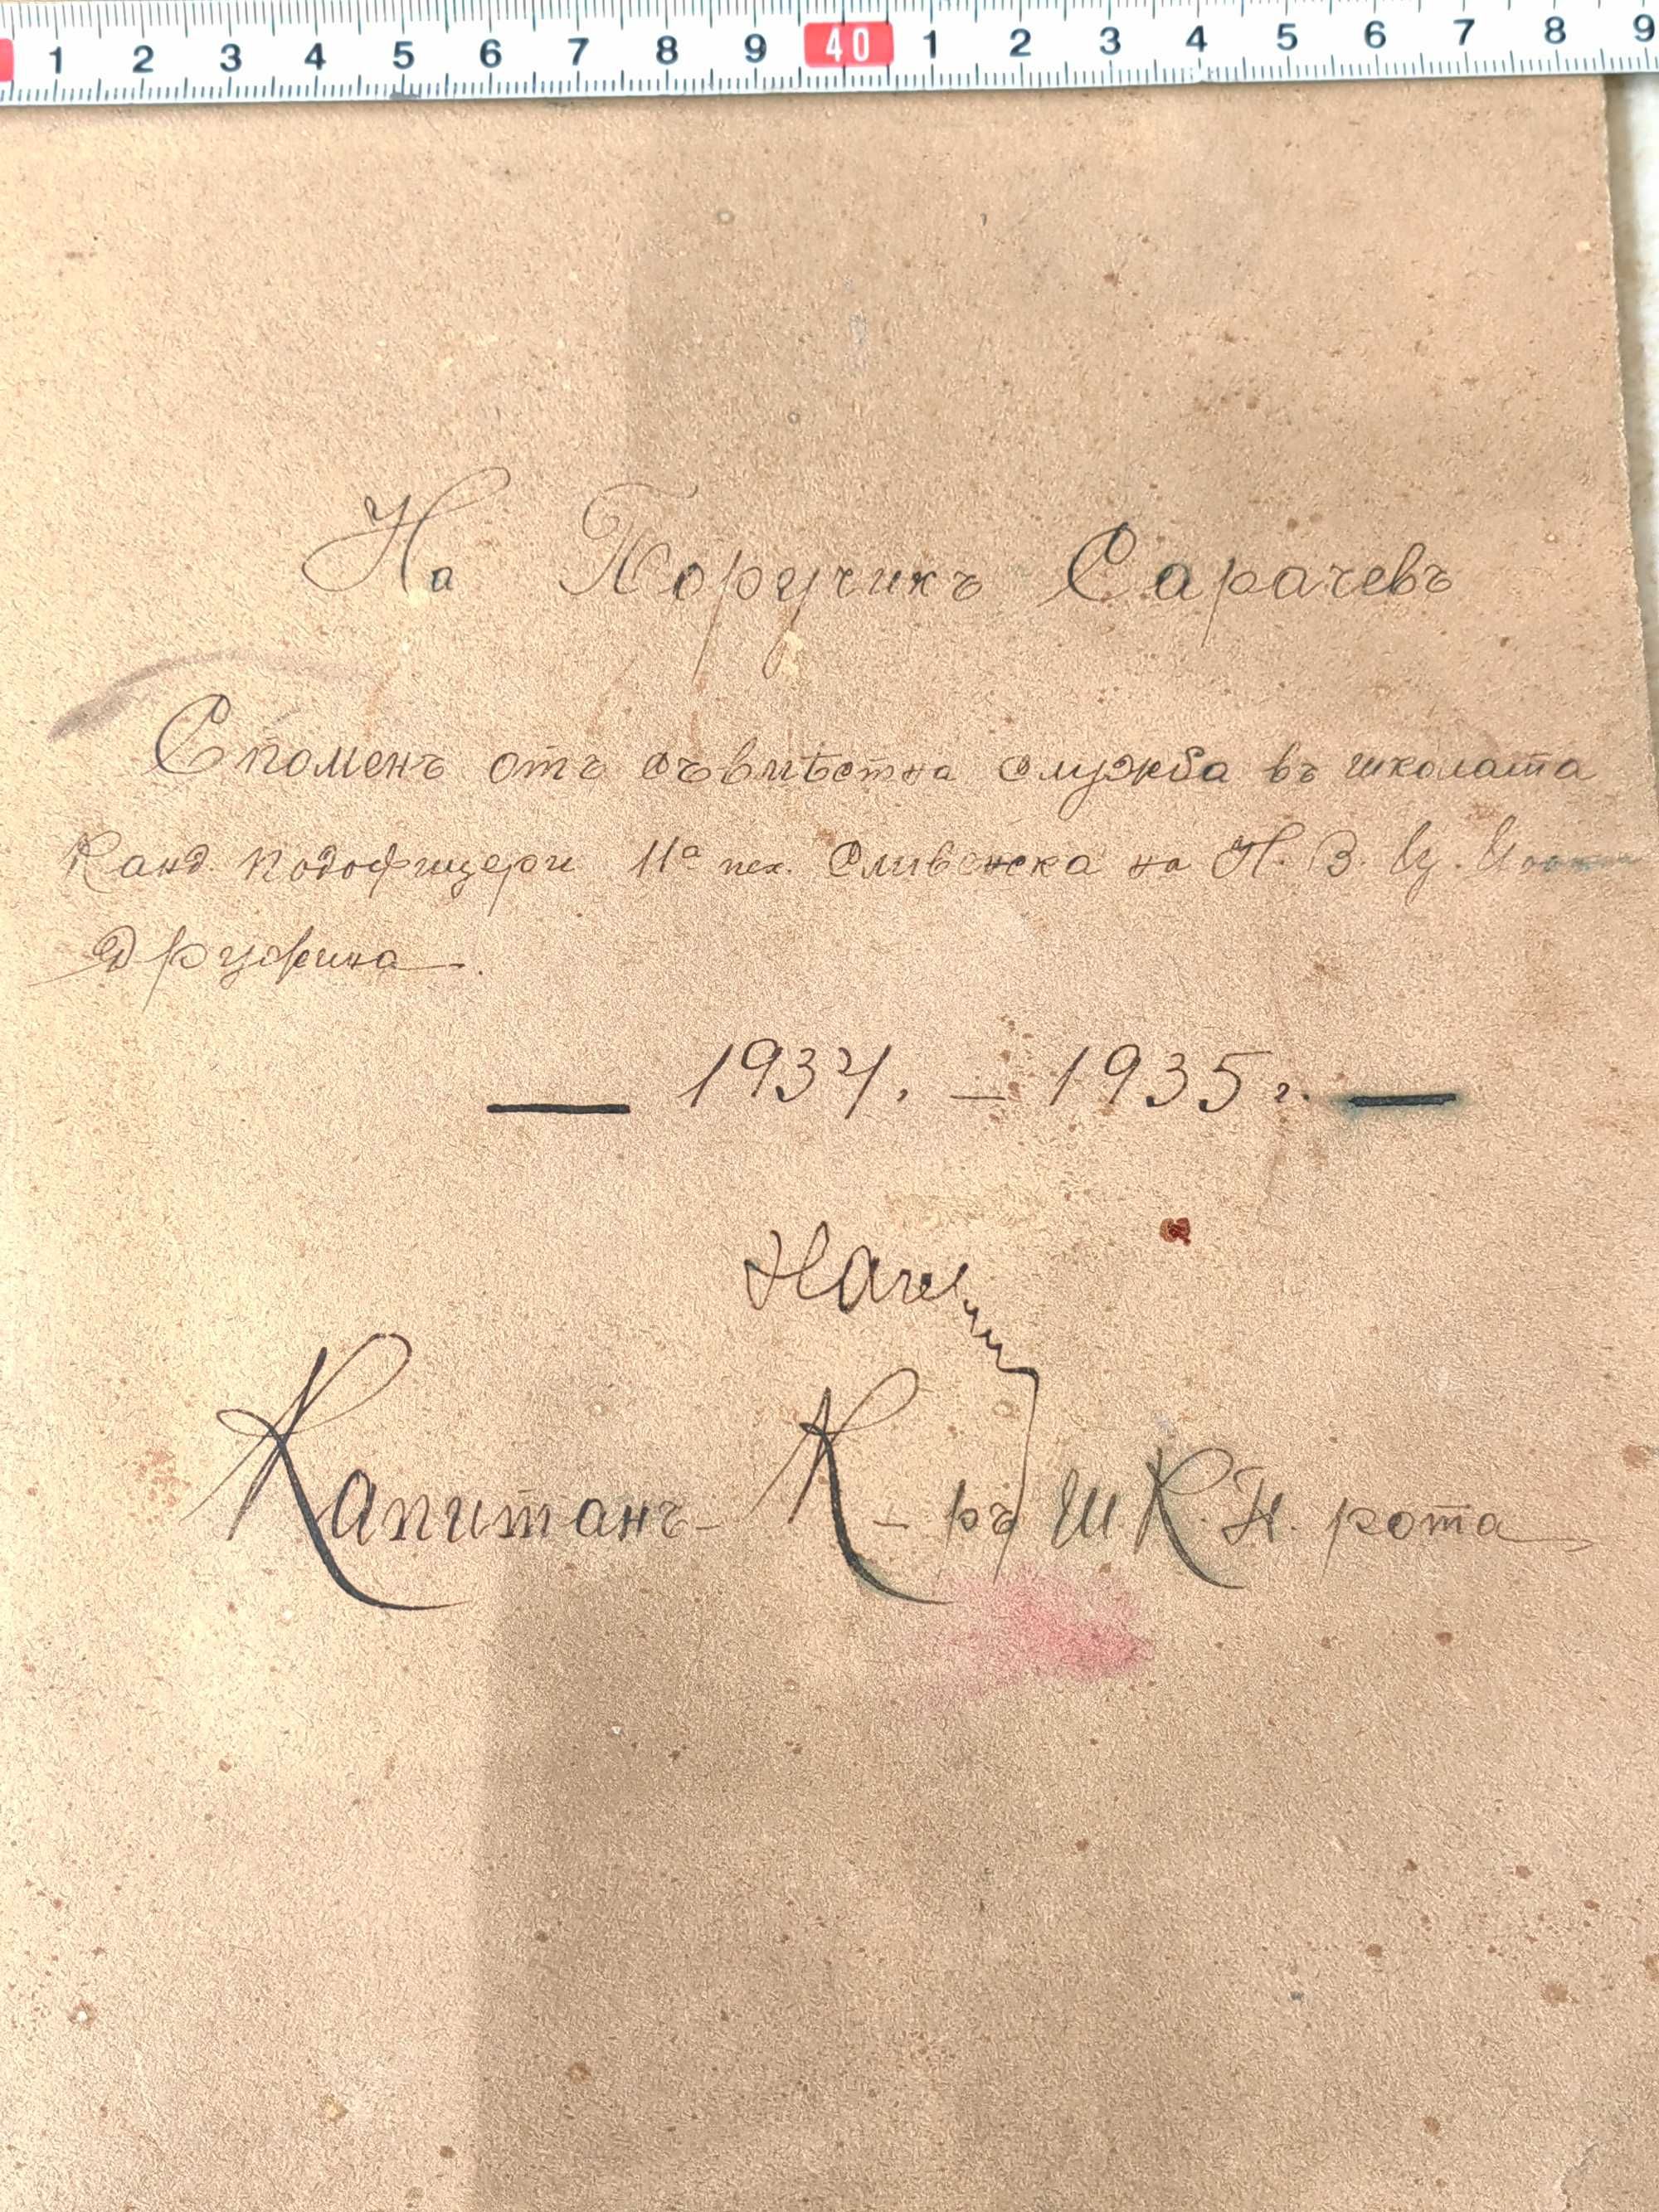 1 2 3 4 5 6 7 8 9 40 1 2 3 4 5 6 7 8 9
На Поручикъ Сарачевъ
Споменъ отъ съвмѣстна служба въ школата
Канд. подофицери 11а пех. Сливенска на Н. В. Ц.
Дружина.
— 1934. — 1935 г. —
Капитанъ - К - ръ Ш. К. П. рота